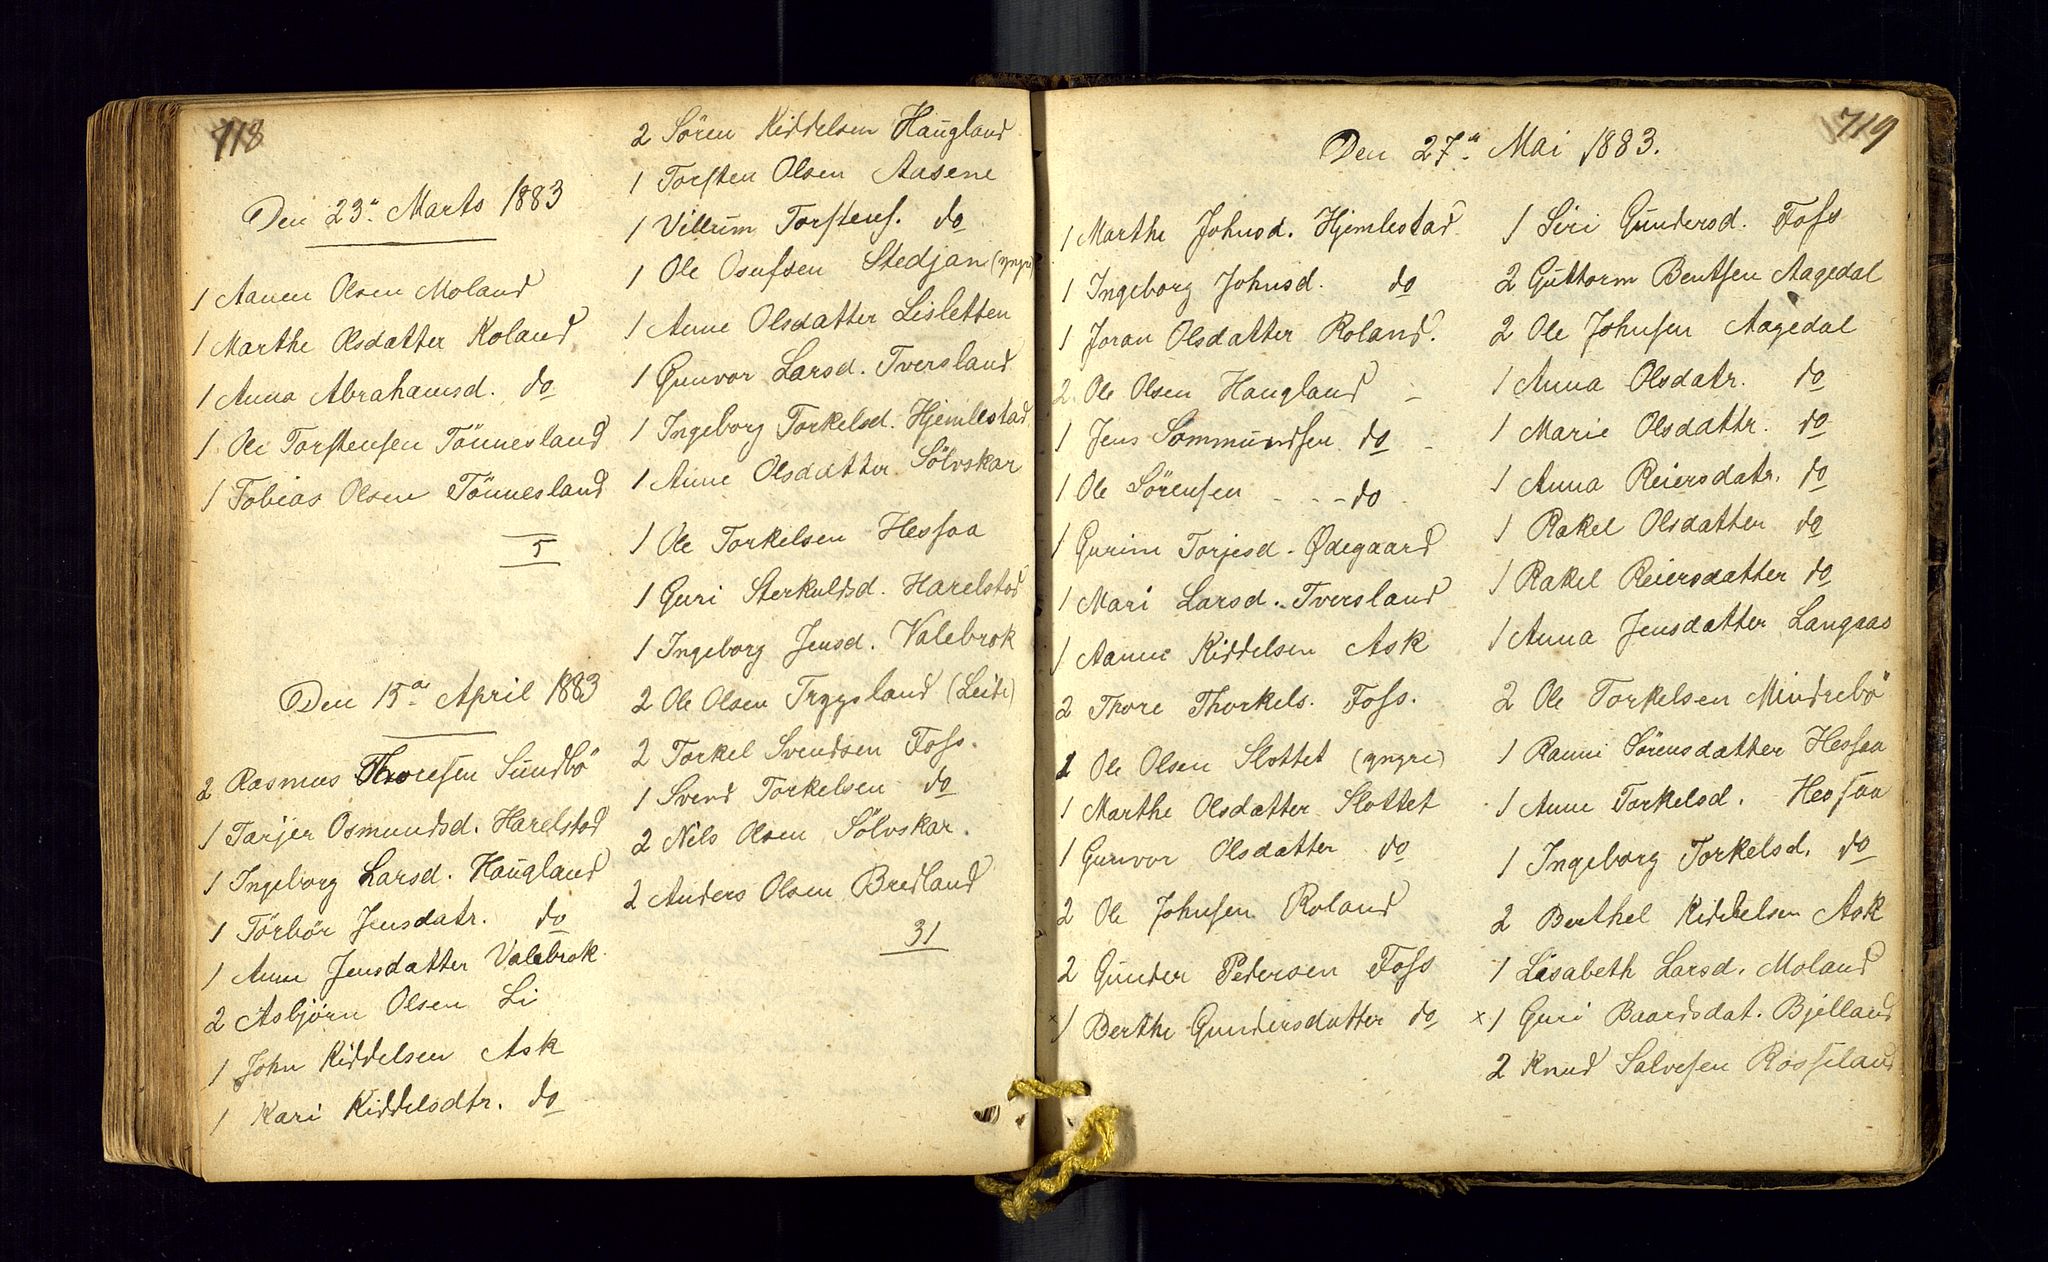 718
Den 23de Marts 1883
1 Aanen Olsen Moland
1 Marthe Olsdatter Roland
1 Anna Abrahamsd. do
1 Ole Torstensen Tönnesland
1 Tobias Olsen Tönnesland
5
Den 15de April 1883
2 Rasmus Thoresen Sundbö
1 Tarjer Osmundsd. Harelstad
1 Ingeborg Larsd. Haugland
1 Törbör Jensdatr. do
1 Anne Jensdatter Valebrok.
2 Asbjörn Olsen Li
1 John Kiddelsen Ask
1 Kari Kiddelsdtr. do
2 Sören Kiddelsen Haugland
1 Torsten Olsen Aasene
1 Villum Torstens. do
1 Ole Osufsen Stedjan (yngre)
1 Anne Olsdatter Lisletten
1 Gunvor Larsd. Tversland
1 Ingeborg Torkelsd. Hjemlestad
1 Anne Olsdatter Sölvskar
1 Ole Torkelsen Hesfaa
1 Guri Sterkuldsd. Harelstad
1 Ingeborg Jensd. Valebrok
2 Ole Olsen Trygsland (Leite)
2 Torkel Svendsen Foss.
1 Svend Torkelsen do
2 Nils Olsen Sölvskar.
2 Anders Olsen Bredland
31
719
Den 27de Mai 1883.
1 Marthe Johnsd. Hjemlestad
1 Ingeborg Johnsd. do
1 Joran Olsdatter Roland.
2 Ole Olsen Haugland -
1 Jens Sommundsen do -
1 Ole Sörensen - - - do
1 Gurine Torjesd. Ødegaard
1 Mari Larsd. Tversland
1 Aanne Kiddelsen Ask
2 Thore Thorkels. Foss.
1 Ole Olsen Slottet (yngre)
1 Marthe Olsdatter Slottet
1 Gunvor Olsdatter do
2 Ole Johnsen Roland
2 Gunder Pedersen Foss
x 1 Berthe Gundersdatter do
1 Siri Gundersd. Foss
2 Guttorm Bentsen Aagedal
2 Ole Johnsen Aagedal
1 Anna Olsdatr. do
1 Marie Olsdattr. do
1 Anna Reiersdatr. do
1 Rakel Olsdatter do
1 Rakel Reiersdatter do
1 Anna Jensdatter Langaas
2 Ole Torkelsen Mindrebö
1 Ranni Sörensdatter Hesfaa
1 Anne Torkelsd. Hesfaa
1 Ingeborg Torkelsd. do
2 Berthel Kiddelsen Ask
1 Lisabeth Larsd. Moland
x 1 Guri Baardsdat. Bjelland
2 Knud Salvesen Rosseland